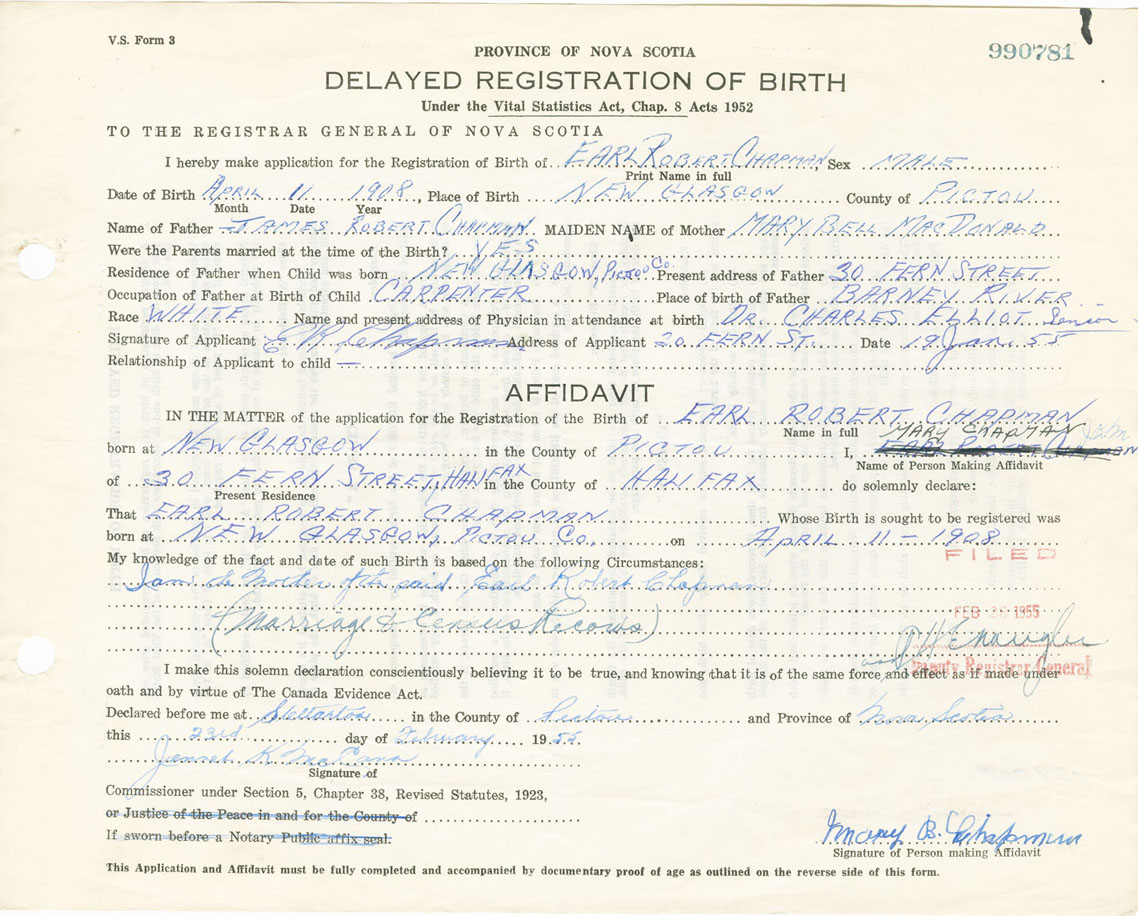 V.S. Form 3
PROVINCE OF NOVA SCOTIA
990781
DELAYED REGISTRATION OF BIRTH
Under the Vital Statistics Act, Chap. 8 Acts 1952
TO THE REGISTRAR GENERAL OF NOVA SCOTIA
I hereby make application for the Registration of Birth of EARL ROBERT CHAPMAN, Sex MALE
Print Name in full
Date of Birth APRIL 11 1908, Place of Birth NEW GLASGOW County of PICTOU
Month Date Year
Name of Father JAMES ROBERT CHAPMAN MAIDEN NAME of Mother MARY BELL MACDONALD
Were the Parents married at the time of the Birth? YES
Residence of Father when Child was born NEW GLASGOW, PICTOU CO. Present address of Father 30 FERN STREET
Occupation of Father at Birth of Child CARPENTER Place of birth of Father BARNEY RIVER
Race WHITE Name and present address of Physician in attendance at birth DR. CHARLES ELLIOT Senior
Signature of Applicant E R Chapman Address of Applicant 30 FERN ST. Date 19 Jan. 55
Relationship of Applicant to child —
AFFIDAVIT
IN THE MATTER of the application for the Registration of the Birth of EARL ROBERT CHAPMAN
Name in full MARY CHAPMAN
born at NEW GLASGOW in the County of PICTOU I,
Name of Person Making Affidavit
of 30 FERN STREET, HALIFAX in the County of HALIFAX do solemnly declare:
Present Residence
That EARL ROBERT CHAPMAN Whose Birth is sought to be registered was
born at NEW GLASGOW, PICTOU CO. on APRIL 11 - 1908
FILED
My knowledge of the fact and date of such Birth is based on the following Circumstances:
I am the Mother of the said Earl Robert Chapman
FEB 1955
(Marriage & Census Records)
Deputy Registrar General
I make this solemn declaration conscientiously believing it to be true, and knowing that it is of the same force and effect as if made under
oath and by virtue of The Canada Evidence Act.
Declared before me at Stellarton in the County of Pictou and Province of Nova Scotia
this 23rd day of February 1955.
Signature of
Commissioner under Section 5, Chapter 38, Revised Statutes, 1923,
or Justice of the Peace in and for the County of
If sworn before a Notary Public affix seal.
Mary B. Chapman
Signature of Person making Affidavit
This Application and Affidavit must be fully completed and accompanied by documentary proof of age as outlined on the reverse side of this form.